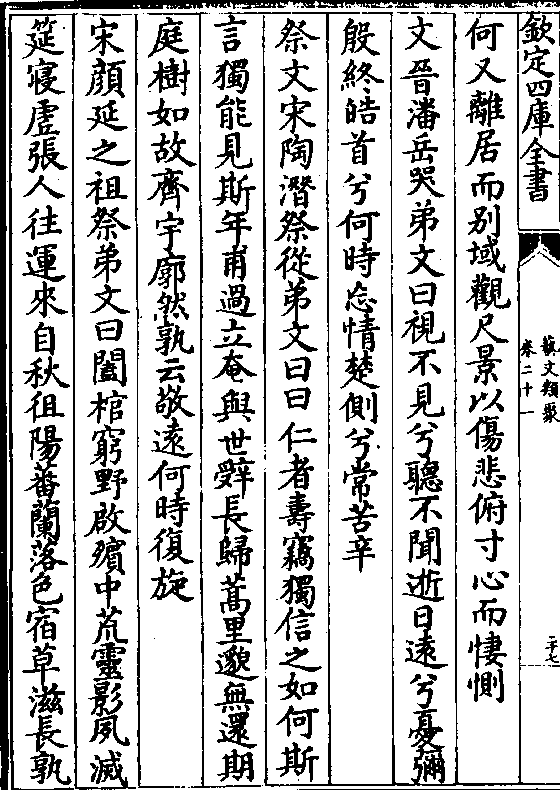 欽定四庫全書
藝文類聚
卷二十一
二十七
何又離居而别域觀尺景以傷悲俯寸心而悽惻
文晉潘岳哭弟文曰視不見兮聽不聞逝日遠兮憂彌
殷終皓首兮何時忘情楚惻兮常苦辛
祭文宋陶潛祭從弟文曰曰仁者壽竊獨信之如何斯
言獨能見斯年甫過立奄與世辭長歸蒿里邈無還期
庭樹如故齋宇廓然孰云敬遠何時復旋
宋顔延之祖祭弟文曰闔棺窮野啟殯中荒靈影夙滅
筵寢虚張人往運來自秋徂陽蕃蘭落色宿草滋長孰